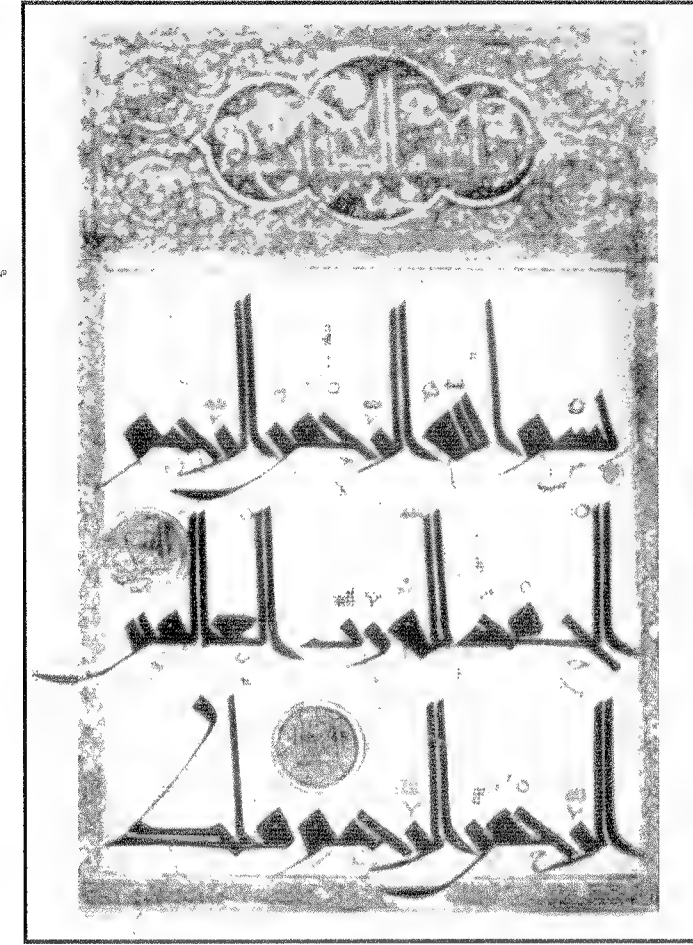 بسم الله الرحمن الرحيم
الحمد لله رب العالمين
الرحمن الرحيم ملك